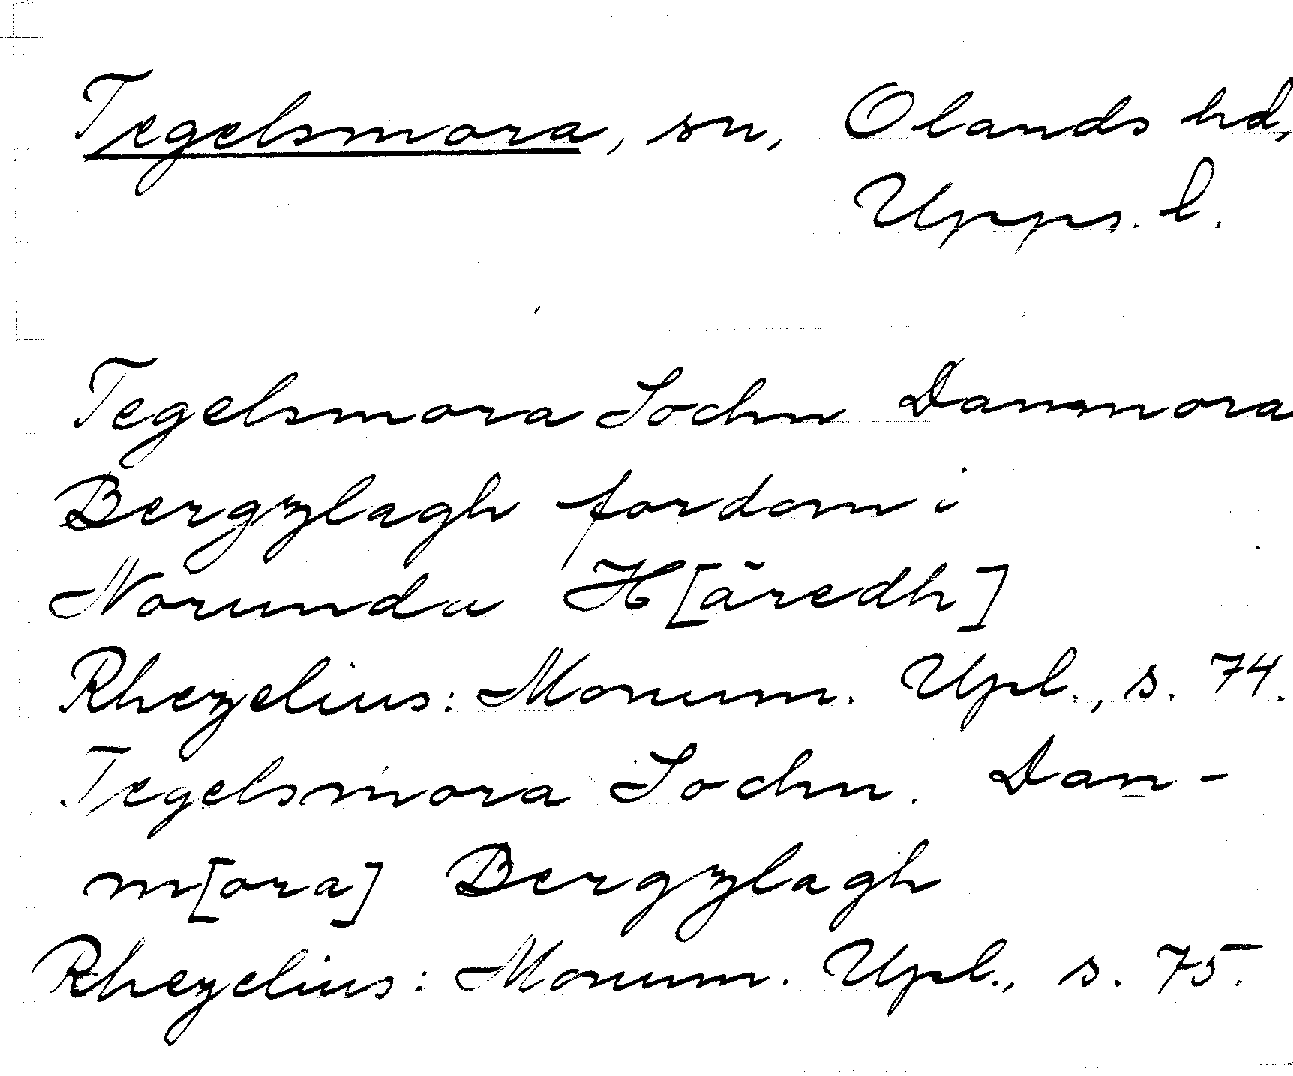 Tegelsmora, sn, Olands hd,
Upps. l.
Tegelsmora Sochn Dannmora
Bergzlagh fordom i
Norunda H[äredh]
Rhezelius: Monum. Upl., s. 74.
Tegelsmora Sochn. Dan-
m[ora] Bergzlagh
Rhezelius: Monum. Upl., s. 75.